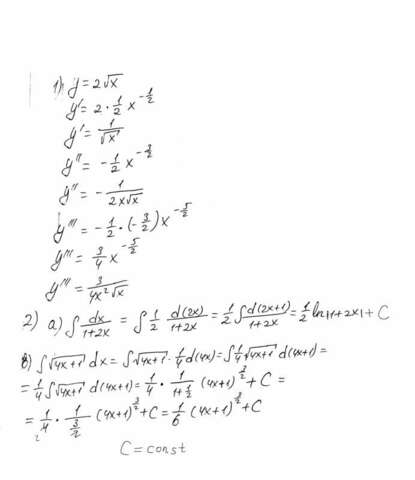 1) y = 2√x
y' = 2 · 1/2 x^(-1/2)
y' = 1/√x
y'' = -1/2 x^(-3/2)
y'' = - 1/(2x√x)
y''' = -1/2 · (-3/2) x^(-5/2)
y''' = 3/4 x^(-5/2)
y''' = 3/(4x²√x)
2) a) ∫ dx/(1+2x) = ∫ 1/2 d(2x)/(1+2x) = 1/2 ∫ d(2x+1)/(1+2x) = 1/2 ln|1+2x| + C
в) ∫ √(4x+1) dx = ∫ √(4x+1) · 1/4 d(4x) = ∫ 1/4 √(4x+1) d(4x+1) =
= 1/4 ∫ √(4x+1) d(4x+1) = 1/4 · 1/(1+1/2) (4x+1)^(3/2) + C =
= 1/4 · 1/(3/2) (4x+1)^(3/2) + C = 1/6 (4x+1)^(3/2) + C
C = const